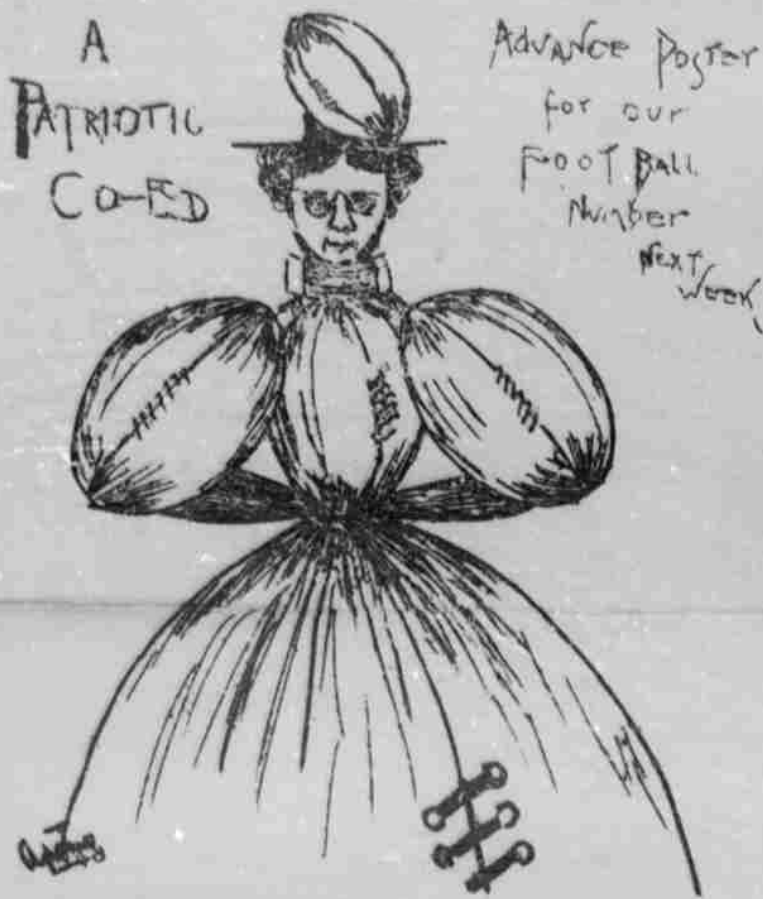 A
PATRIOTIC
CO-ED
ADVANCE POSTER
for our
FOOT BALL
Number
Next
Week